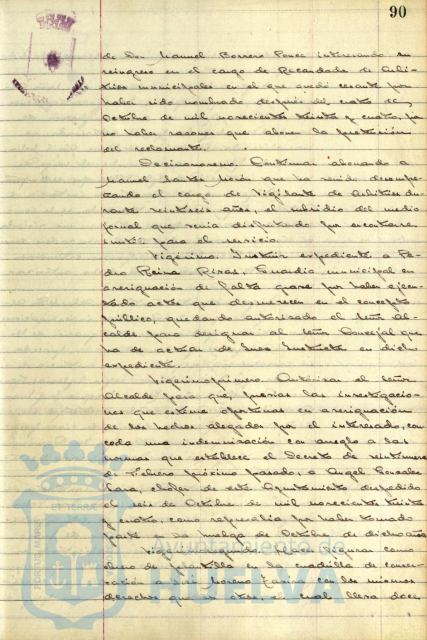 90
de Don Manuel Borrero Ponce interesando su
reingreso en el cargo de Recaudador de Arbi-
trios municipales en el que quedó cesante por
haber sido nombrado después del cuatro de
Octubre de mil novecientos treinta y cuatro, por
no haber razones que abonen la pretensión
del reclamante.
Decimonoveno. Continuar abonando a
Manuel Santos Morón que ha venido desempe-
ñando el cargo de Vigilante de Arbitrios du-
rante veintiseis años, el subsidio del medio
jornal que venia disfrutando por encontrarse
inutil para el servicio.
Vigésimo. Instruir expediente a Pe-
dro Reina Rivas, Guardia municipal en
averiguación de falta grave por haber ejecu-
tado actos que desmerecen en el concepto
público, quedando autorizado el señor Al-
calde para designar al señor Concejal que
ha de actuar de Juez Instructor en dicho
expediente.
Vigesimoprimero. Autorizar al señor
Alcalde para que, previas las investigacio-
nes que estime oportunas en averiguación
de los hechos alegados por el interesado, con-
ceda una indemnización con arreglo a las
normas que establece el Decreto de veintinueve
de Febrero próximo pasado, a Angel Gonzalez
Lara, chofer de este Ayuntamiento despedido
el seis de Octubre de mil novecientos treinta
y cuatro, como represalia por haber tomado
parte en la huelga de Octubre de dicho año
que figurar como
obrero de plantilla en la cuadrilla de conser-
vación a José Moreno con los mismos
derechos que los otros, el cual lleva doce
Ayuntamiento de
HUELVA